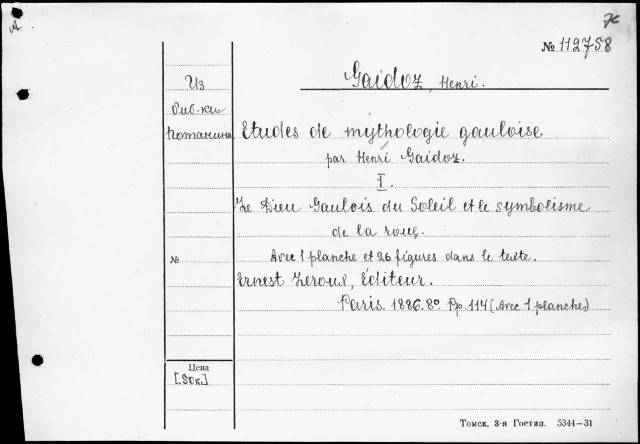 A.
№ 112758
Gaidoz, Henri.
Из
биб-ки
Потанина
Etudes de mythologie gauloise
par Henri Gaidoz.
I.
Le Dieu Gaulois du Soleil et le symbolisme
de la roue.
№
Avec 1 planche et 26 figures dans le texte.
Ernest Leroux, Éditeur.
Paris. 1886. 8º. Pp. 114 (Avec 1 planche)
Цена
[50к.]
Томск, 3-я Гостип. 5344—31